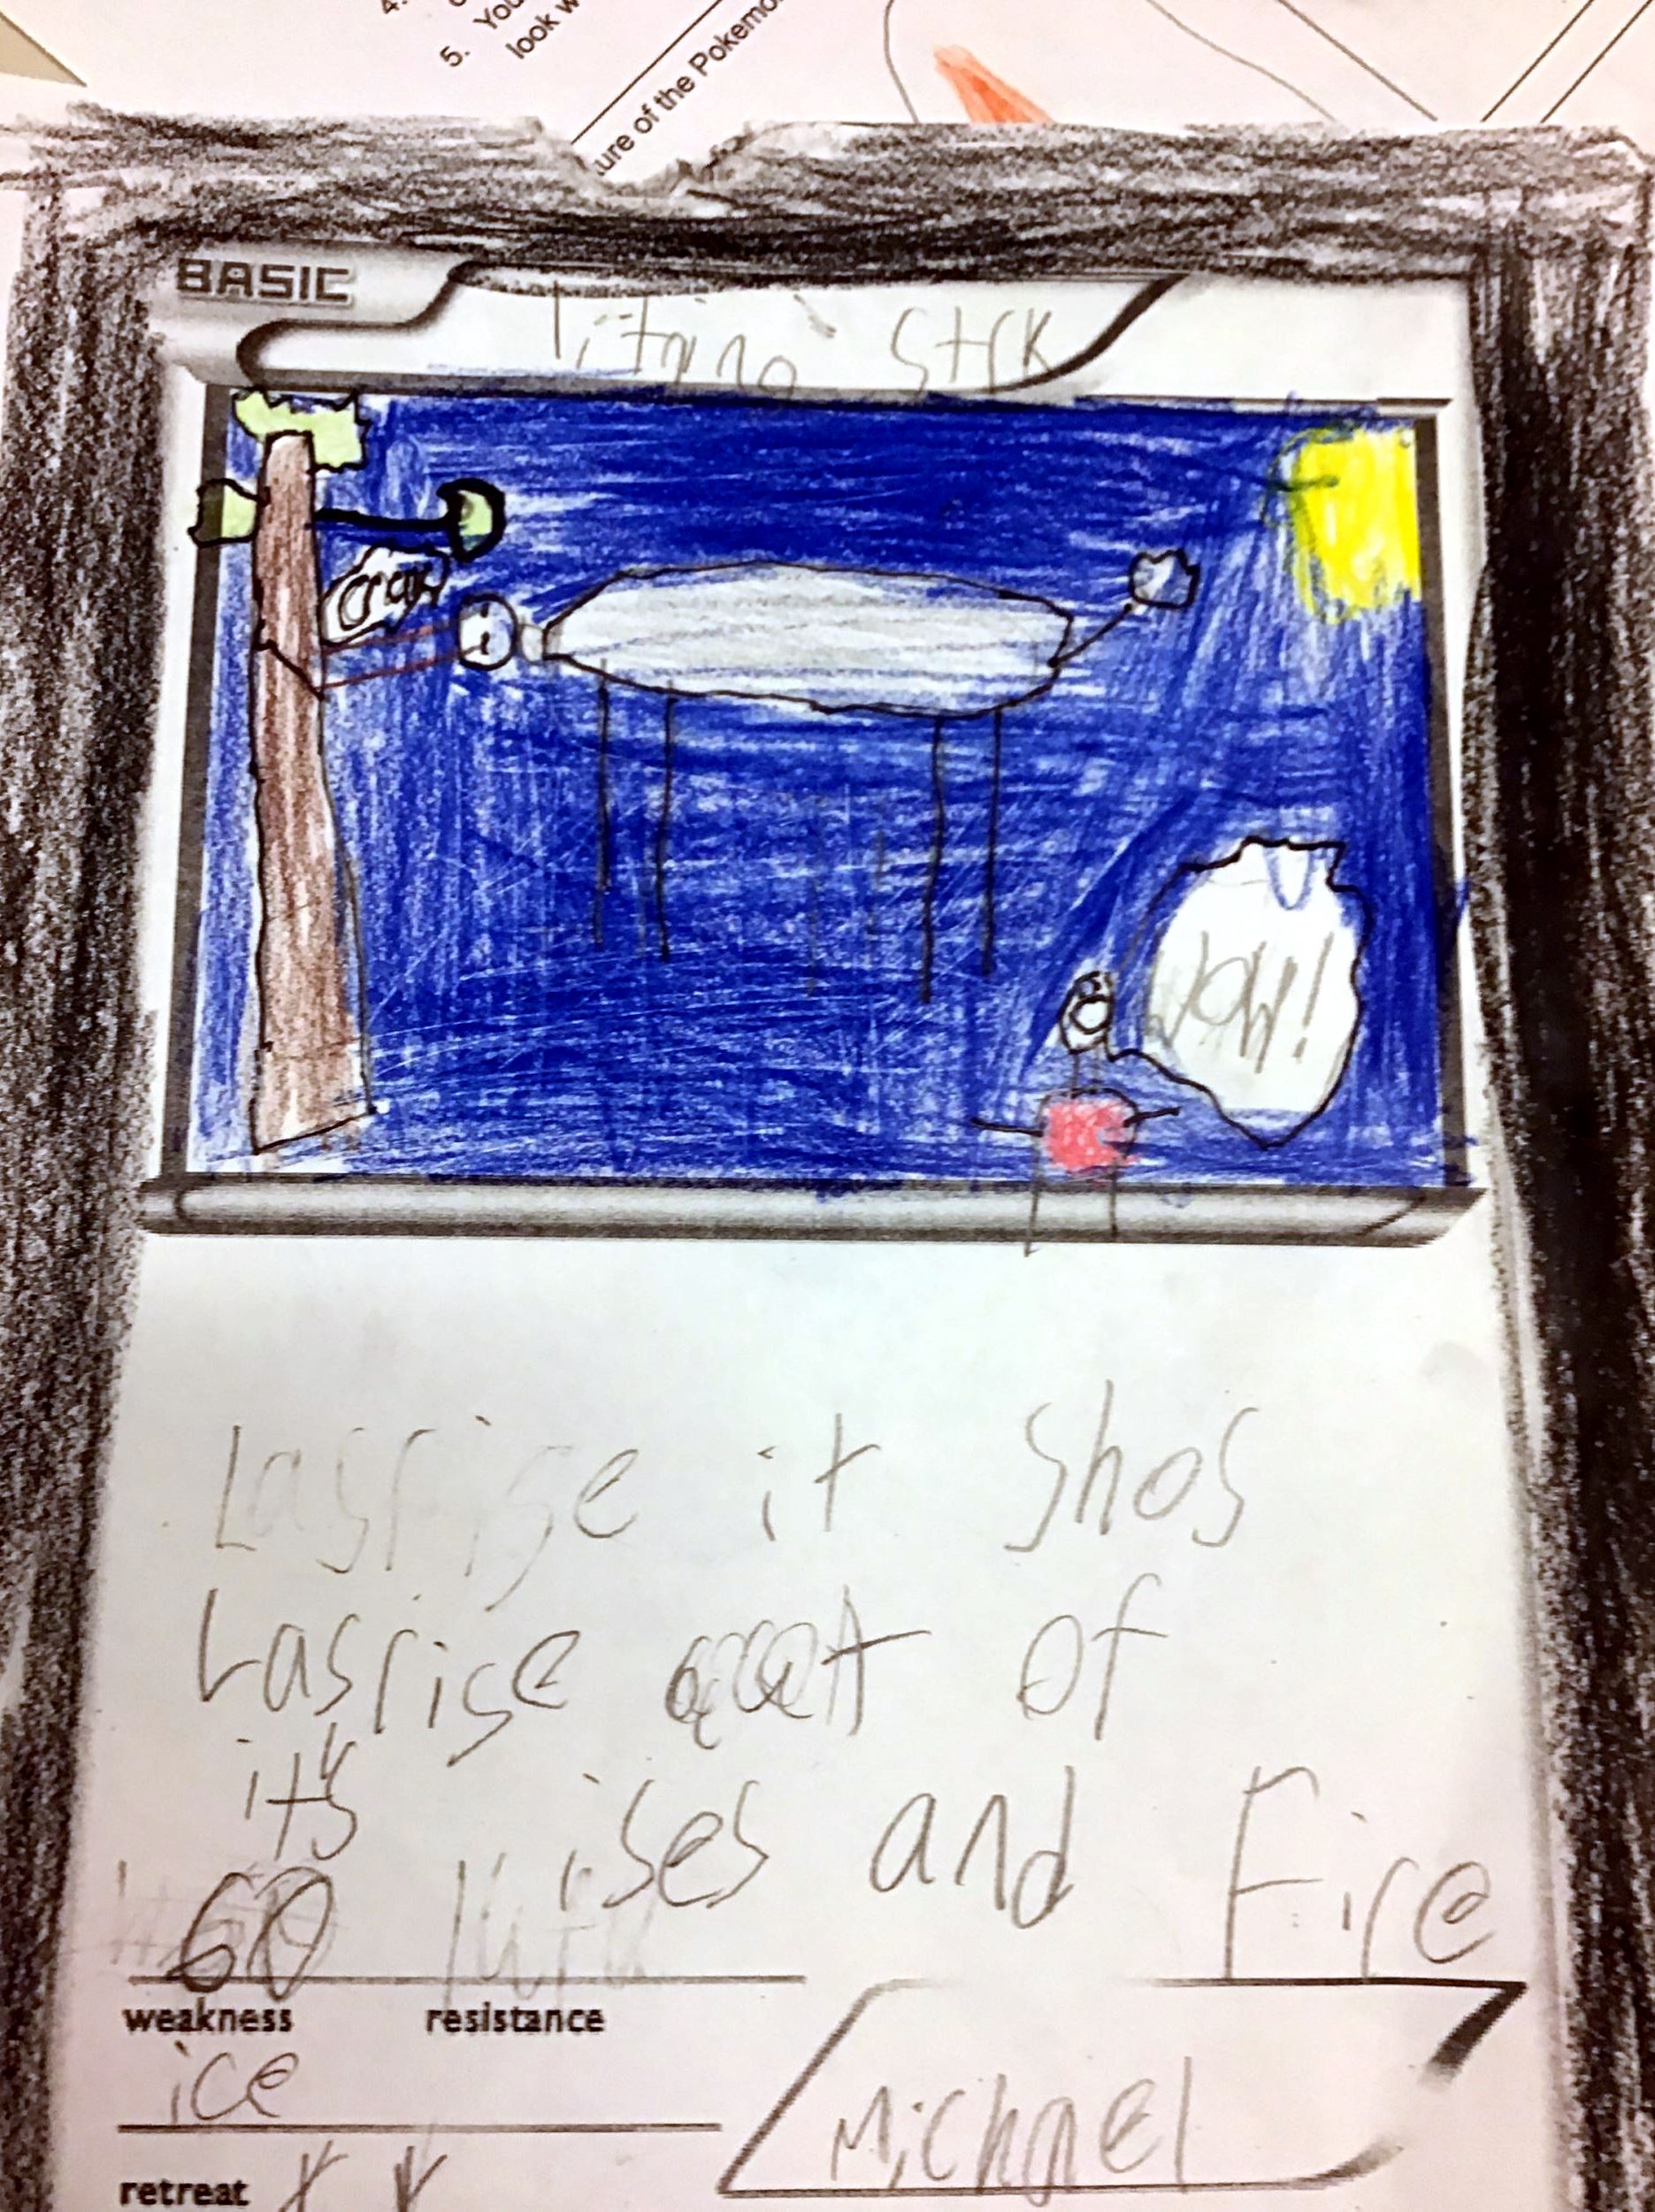 4.
5. You
look w
ure of the Pokemo
BASIC
litning strk
crack
WOW!
Lasrise it Shos
Lasrise out of
it's ises and Fire
60
weakness resistance
ice
Michael
retreat